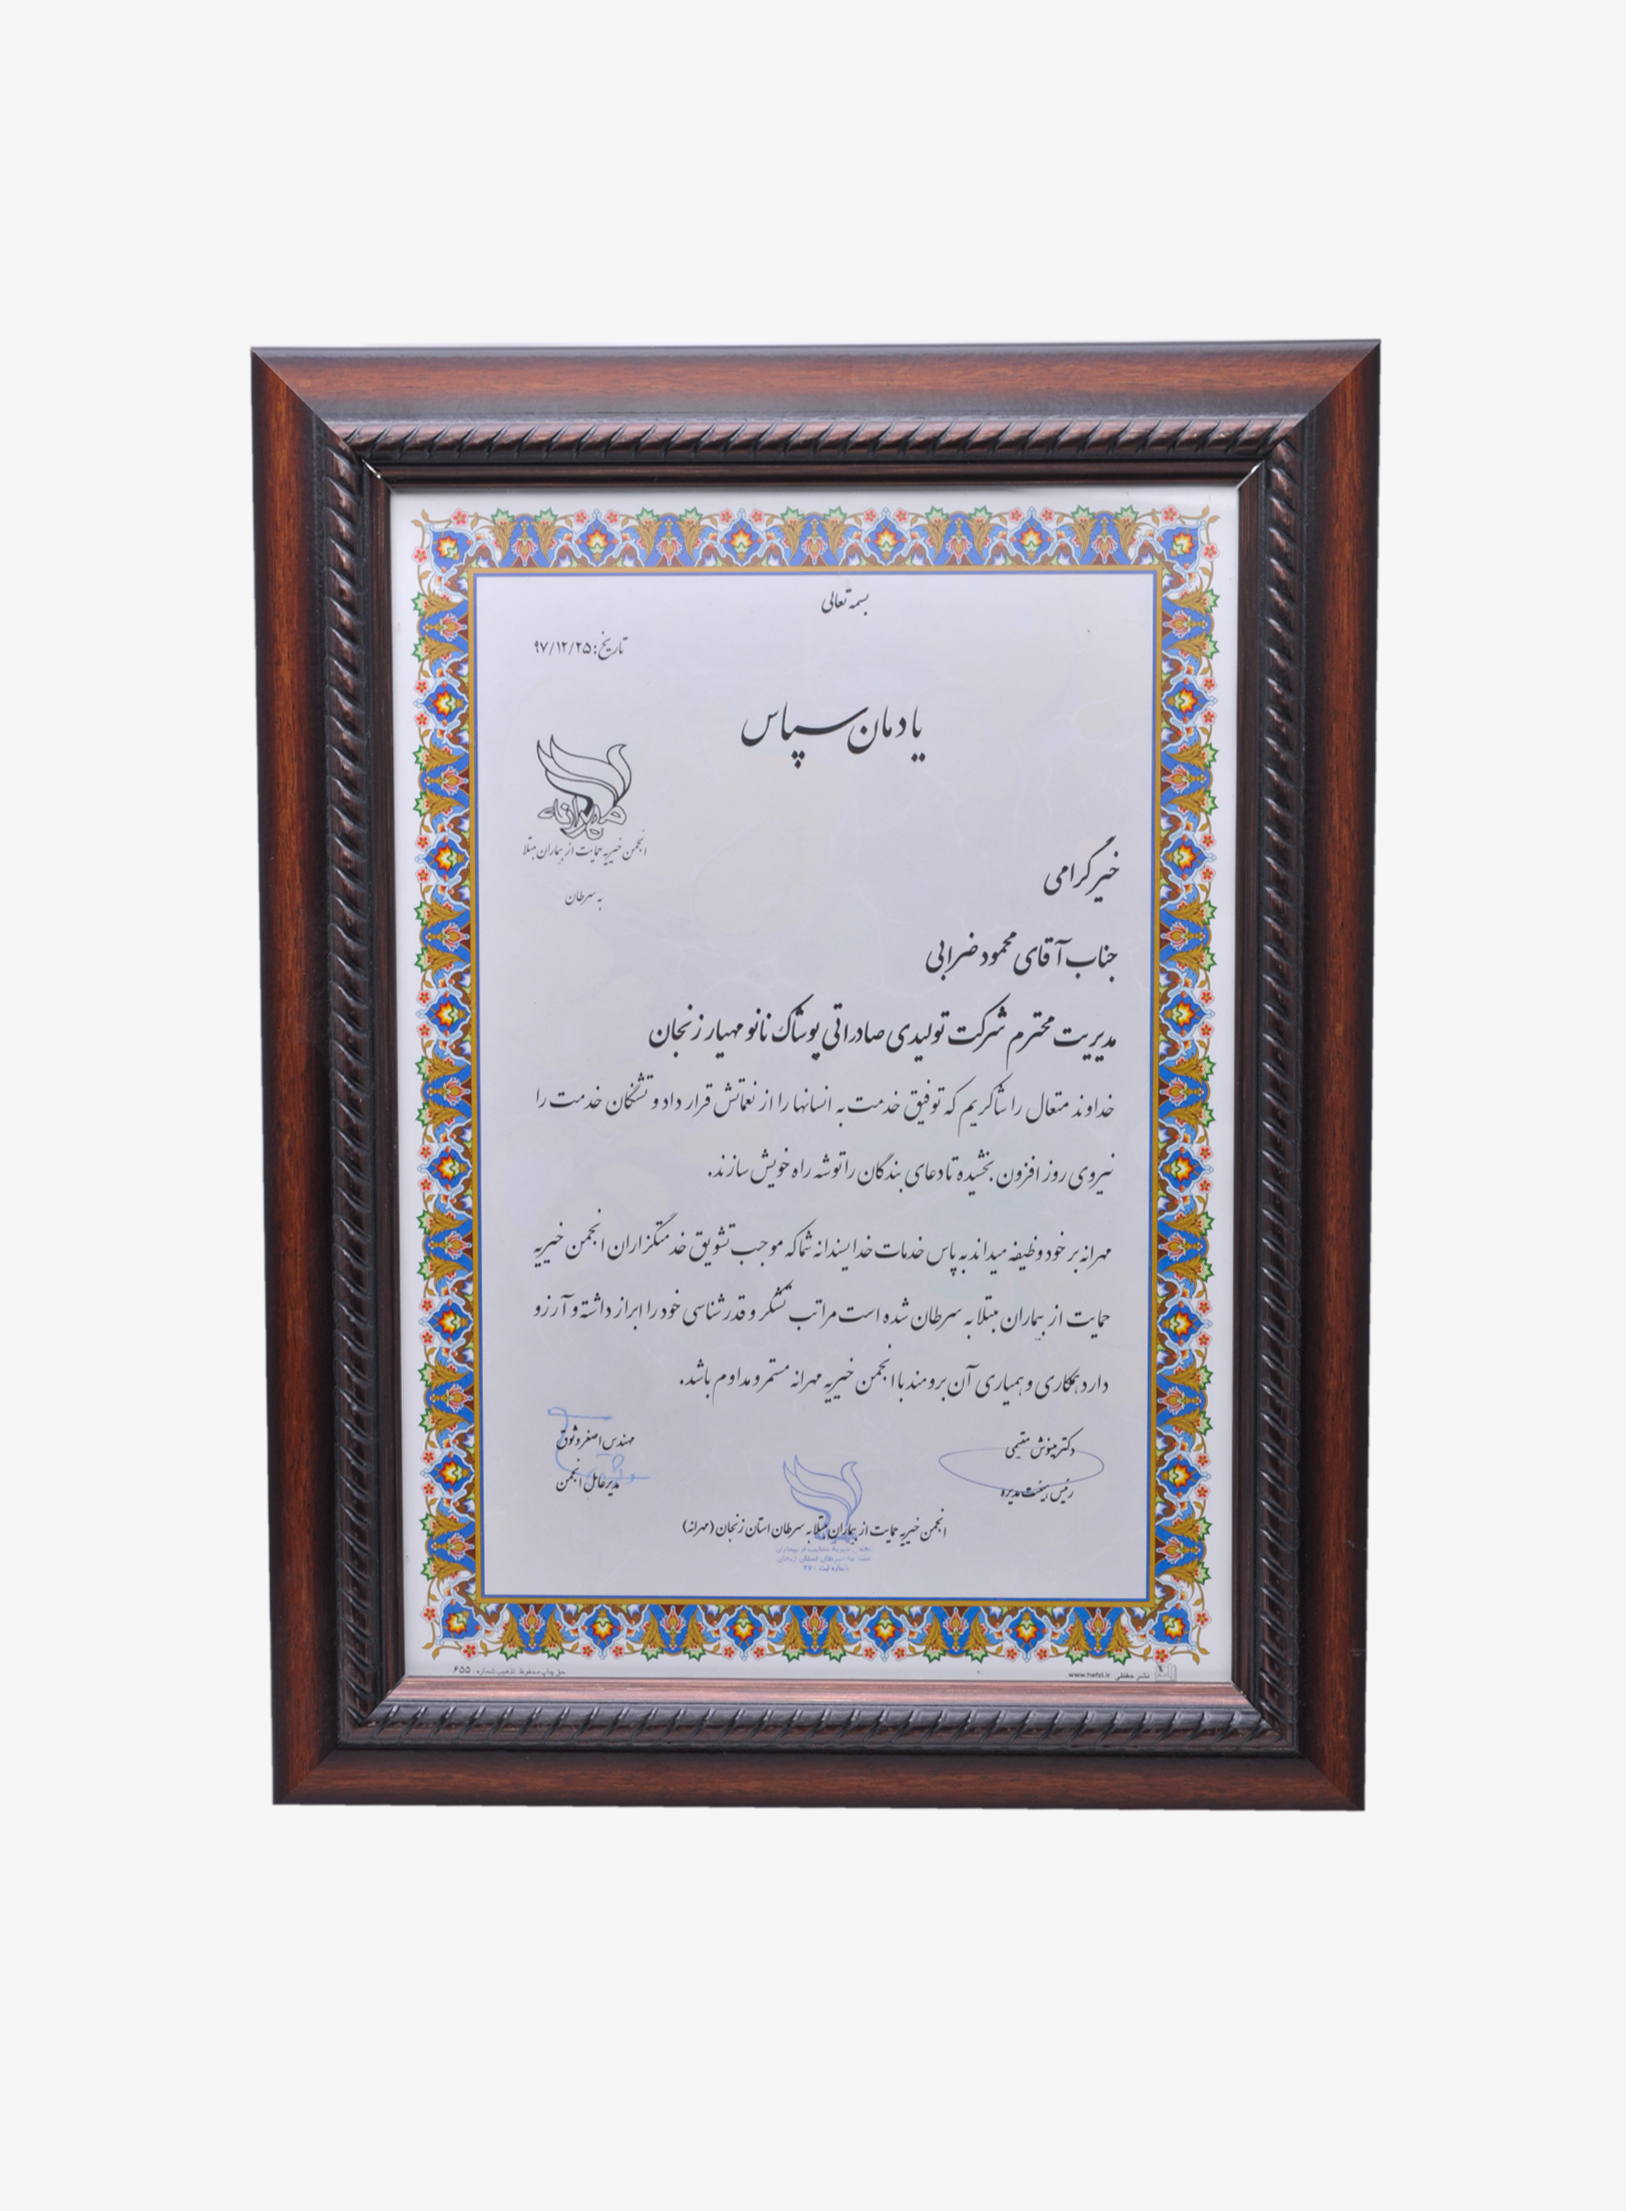 بسمه تعالی
تاریخ: ۹۷/۱۲/۲۵
یادمان سپاس
مهرانه
انجمن خیریه حمایت از بیماران مبتلا
به سرطان
خیر گرامی
جناب آقای محمود ضرابی
مدیریت محترم شرکت تولیدی صادراتی پوشاک نانو مهیار زنجان
خداوند متعال را شاکریم که توفیق خدمت به انسانها را از نعماتش قرار داد و تشنگان خدمت را
نیروی روز افزون بخشیده تا دعای بندگان را توشه راه خویش سازند.
مهرانه بر خود وظیفه میداند به پاس خدمات خداپسندانه شما که موجب تشویق خدمتگزاران انجمن خیریه
حمایت از بیماران مبتلا به سرطان شده است مراتب تشکر و قدرشناسی خود را ابراز داشته و آرزو
دارد همکاری و همیاری آن برومند با انجمن خیریه مهرانه مستمر و مداوم باشد.
دکتر مینوش مقیمی
رئیس هیئت مدیره
مهندس اصغر وثوق
مدیرعامل انجمن
انجمن خیریه حمایت از بیماران مبتلا به سرطان استان زنجان (مهرانه)
انجمن خیریه حمایت از بیماران
مبتلا به سرطان استان زنجان
شماره ثبت ۲۷۰
نشر حفظی www.hefzi.ir
حق چاپ محفوظ تذهیب شماره: ۶۵۵